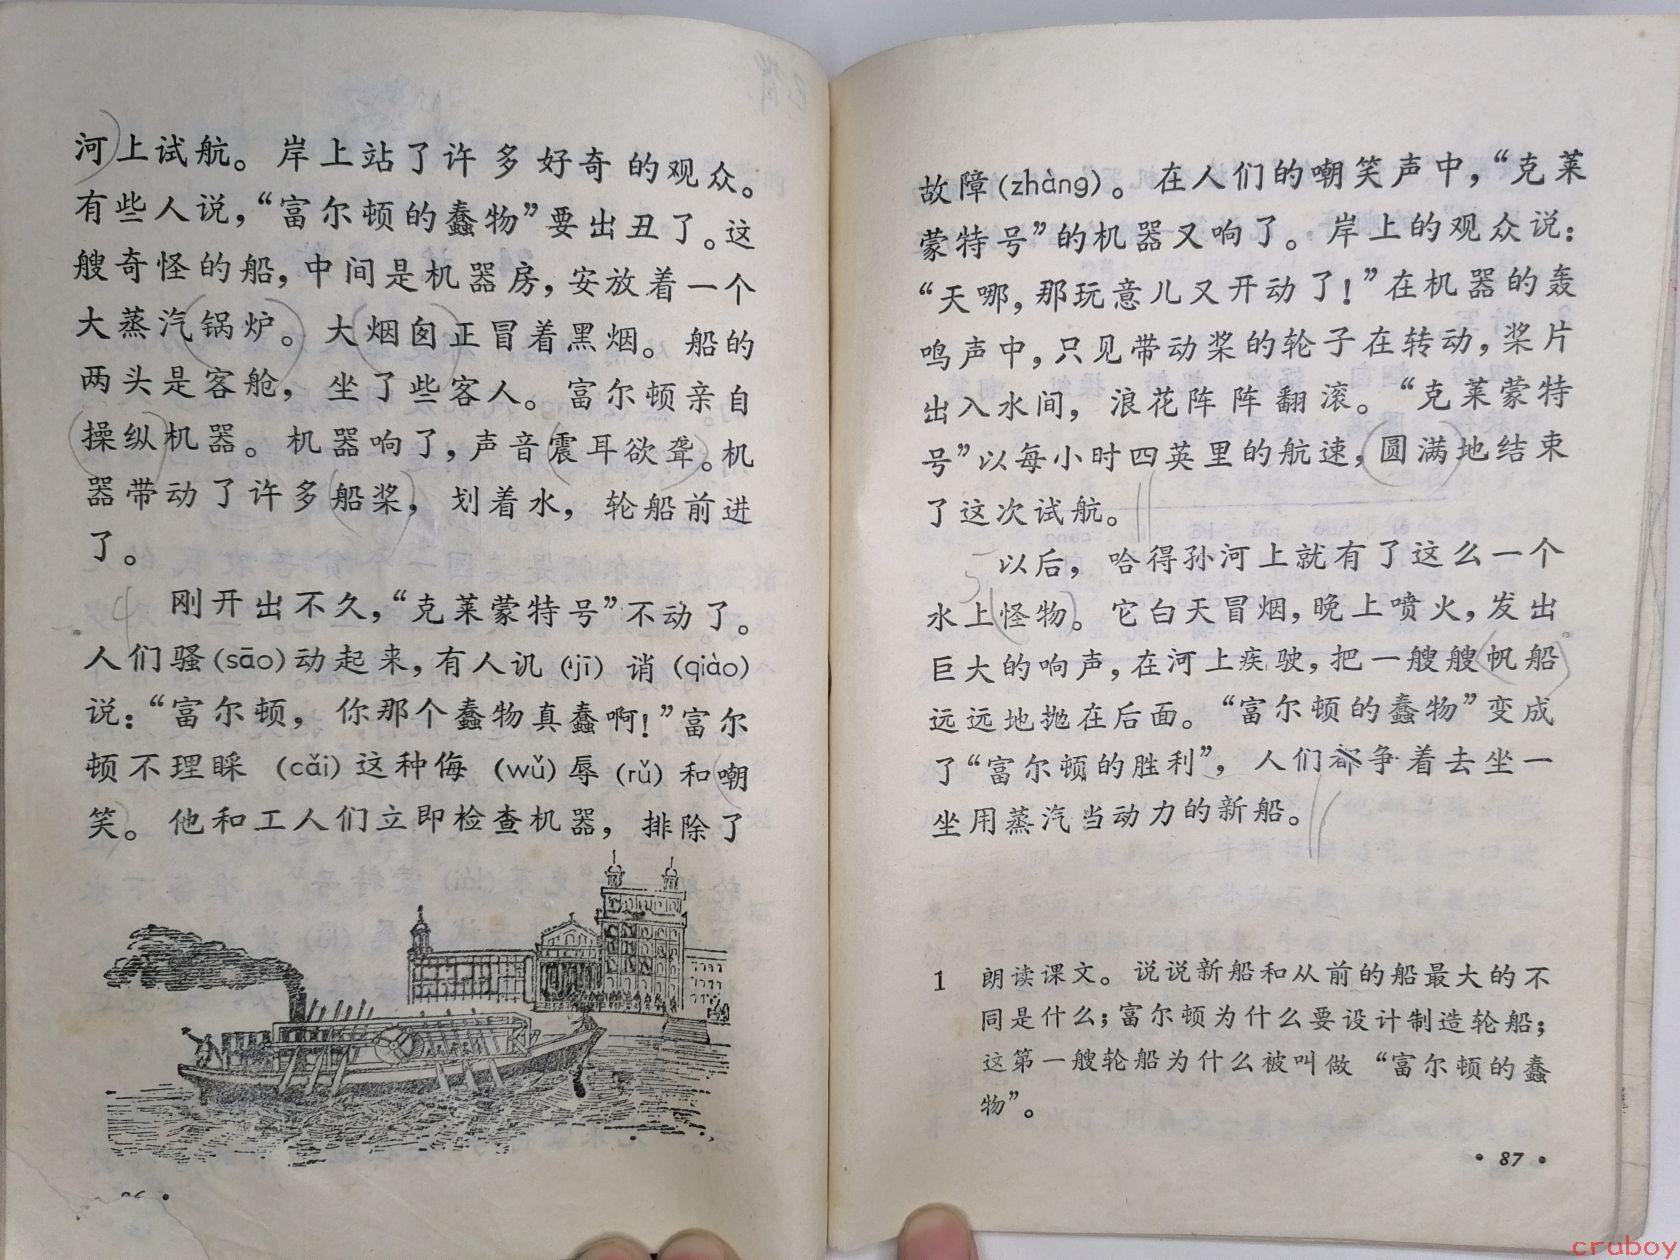 河上试航。岸上站了许多好奇的观众。
有些人说，“富尔顿的蠢物”要出丑了。这
艘奇怪的船，中间是机器房，安放着一个
大蒸汽锅炉。大烟囱正冒着黑烟。船的
两头是客舱，坐了些客人。富尔顿亲自
操纵机器。机器响了，声音震耳欲聋。机
器带动了许多船桨，划着水，轮船前进
了。
4
刚开出不久，“克莱蒙特号”不动了。
人们骚(sāo)动起来，有人讥(jī)诮(qiào)
说：“富尔顿，你那个蠢物真蠢啊！”富尔
顿不理睬(cǎi)这种侮(wǔ)辱(rǔ)和嘲
笑。他和工人们立即检查机器，排除了
故障(zhàng)。在人们的嘲笑声中，“克莱
蒙特号”的机器又响了。岸上的观众说：
“天哪，那玩意儿又开动了！”在机器的轰
鸣声中，只见带动桨的轮子在转动，桨片
出入水间，浪花阵阵翻滚。“克莱蒙特
号”以每小时四英里的航速，圆满地结束
了这次试航。
5
以后，哈得孙河上就有了这么一个
水上怪物。它白天冒烟，晚上喷火，发出
巨大的响声，在河上疾驶，把一艘艘帆船
远远地抛在后面。“富尔顿的蠢物”变成
了“富尔顿的胜利”，人们都争着去坐一
坐用蒸汽当动力的新船。
1 朗读课文。说说新船和从前的船最大的不
同是什么；富尔顿为什么要设计制造轮船；
这第一艘轮船为什么被叫做“富尔顿的蠢
物”。
·87·
cruboy